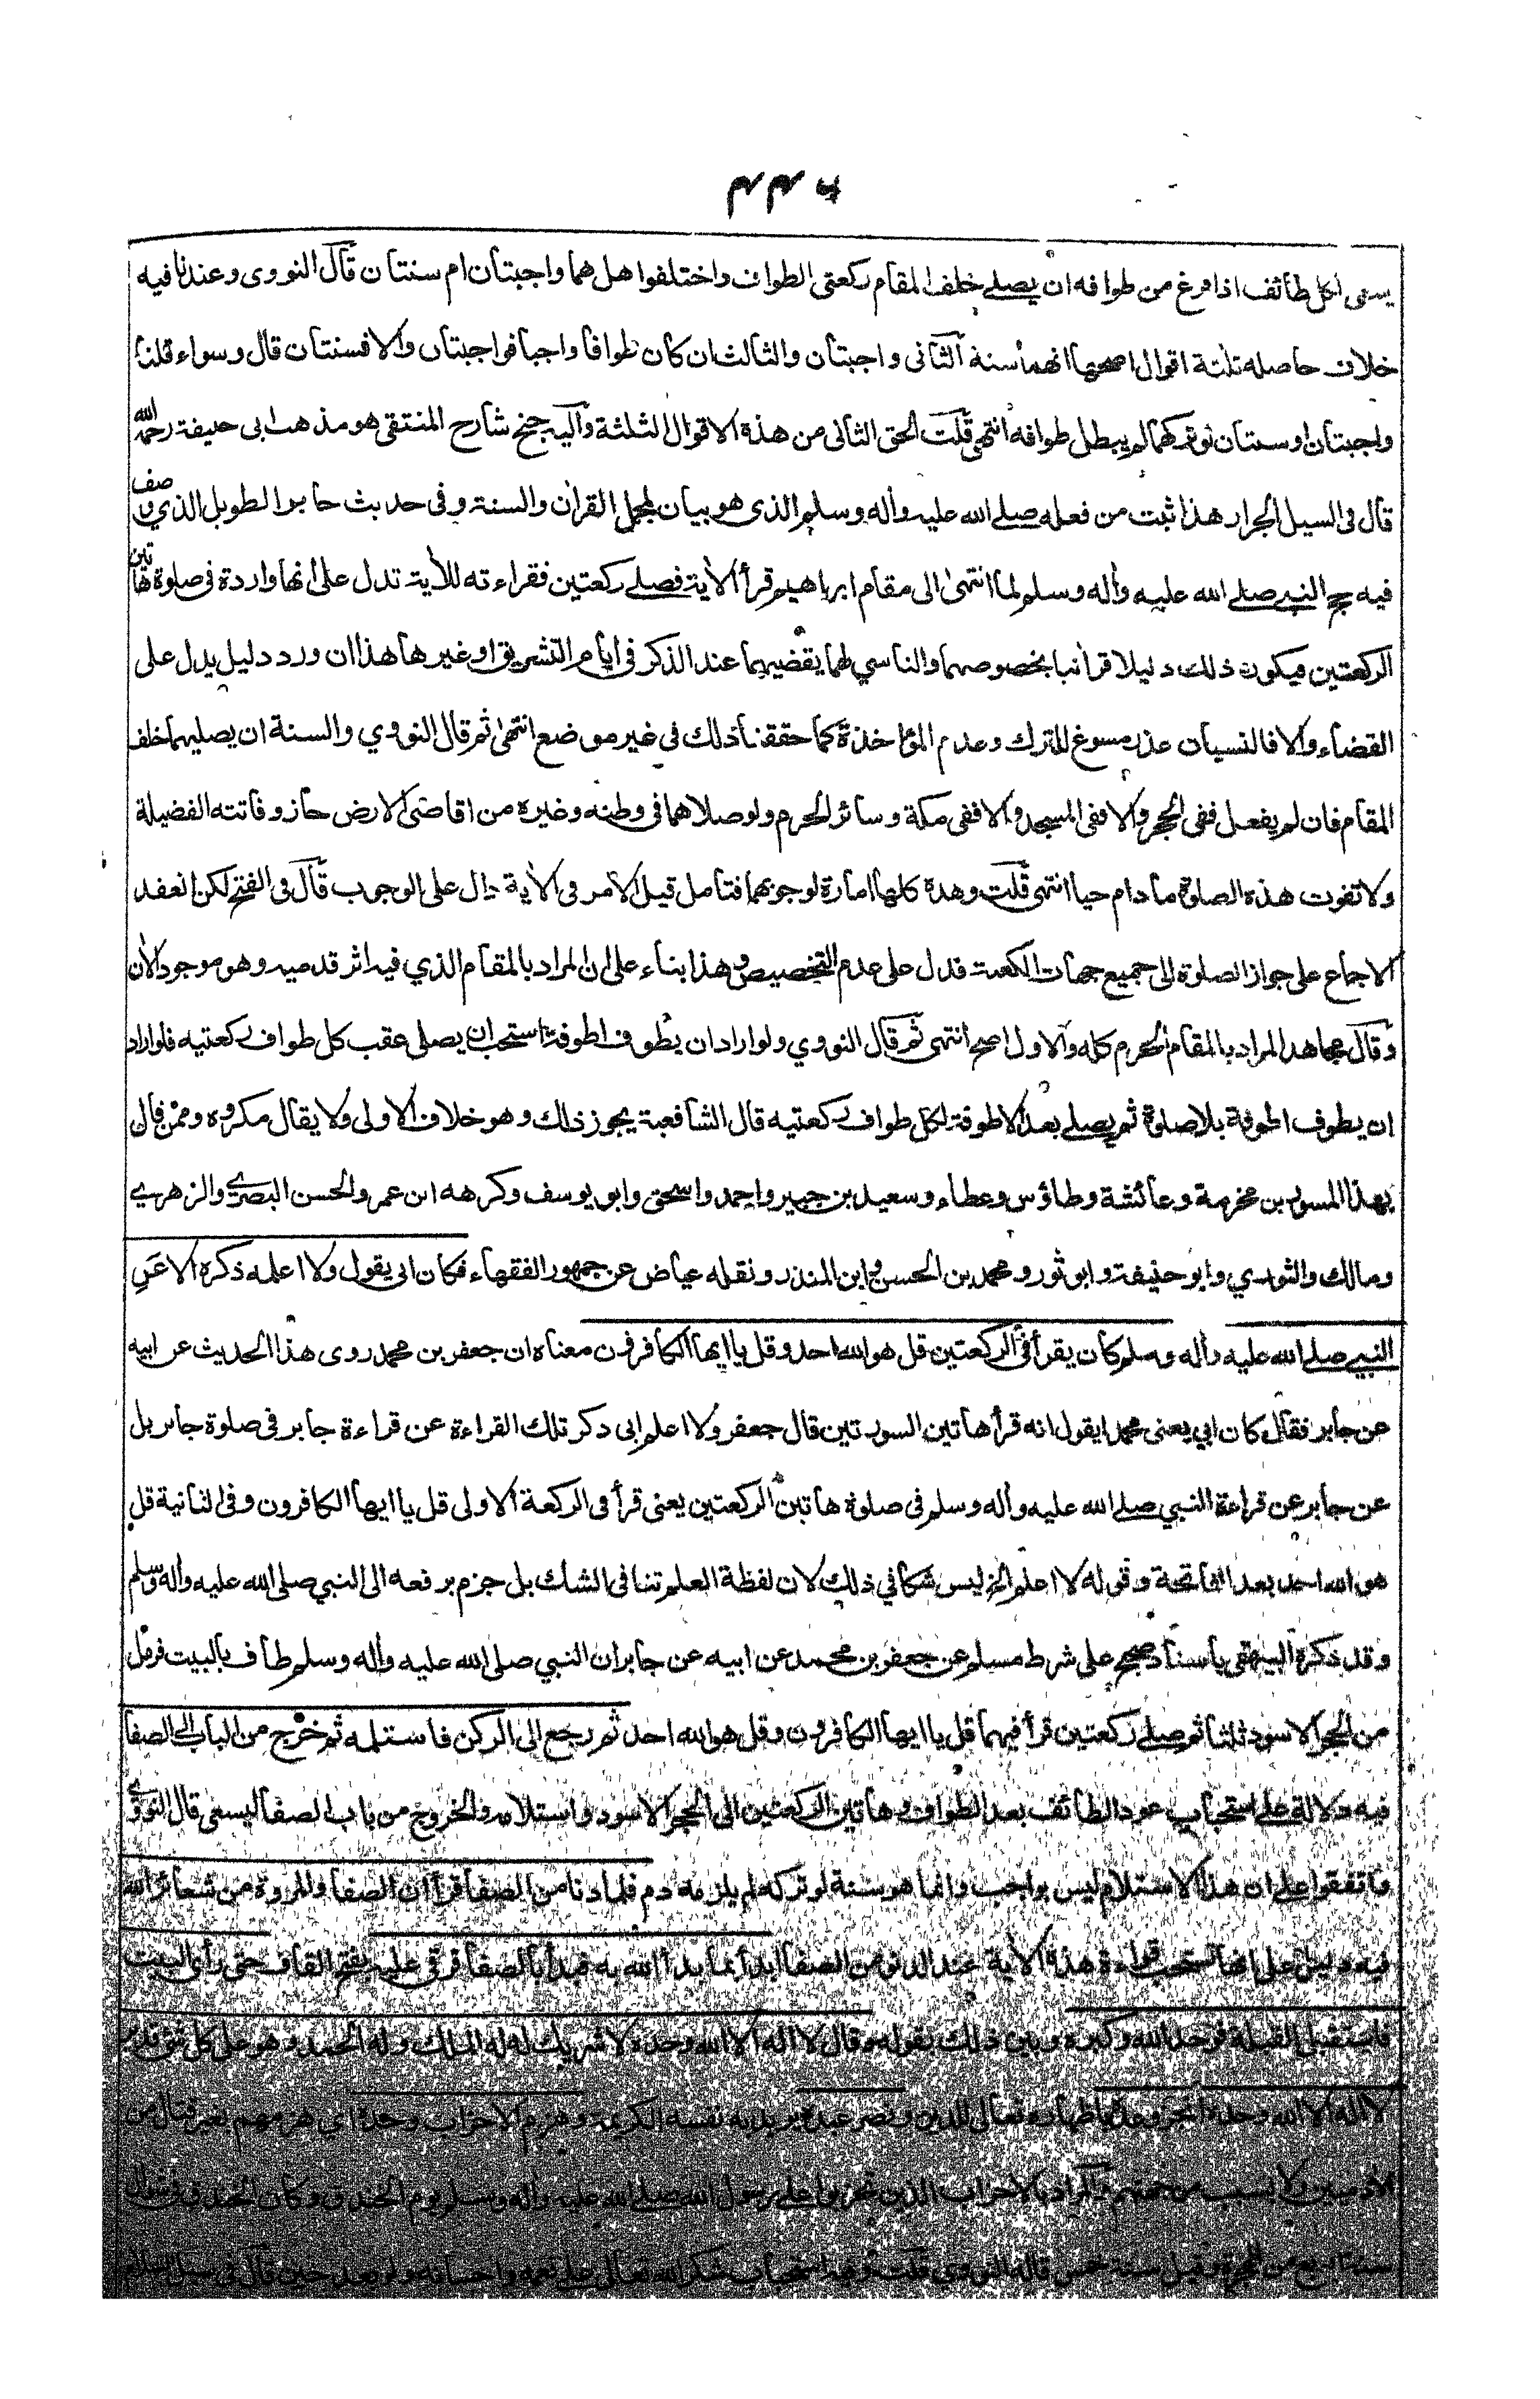 ٤٤٣
ينبغي لكل طائف اذا فرغ من طوافه ان يصلے خلف المقام ركعتي الطواف واختلفوا هل هما واجبتان ام سنتان قال النووى وعندنا فيه
خلاف حاصله ثلثة اقوال اصحها انهما سنة الثانى واجبتان والثالث ان كان طوافا واجبا فواجبتان والا فسنتان قال وسواء قلنا
واجبتان او سنتان لو تركهما لم يبطل طوافه انتهى قلت الحق الثانى من هذة الاقوال الثلثة واليه جنح شارح المنتقى هو مذهب ابى حنيفة رحمه الله
قال فى السيل الجرار هذا ثبت من فعله صلے الله عليه وأله وسلم الذى هو بيان لمجمل القران والسنة وفى حديث جابر الطويل الذي وصف
فيه حج النبے صلے الله عليه وأله وسلم لما انتهىٰ الى مقام ابراهيم قرأ الأية فصلے ركعتين فقراءته للأية تدل على انها واردة فى صلوة هاتين
الركعتين فيكون ذلك دليلا قرانيا بخصوصهما والناسي لهما يقضيهما عند الذكر فى ايام التشريق او غيرها هذا ان ورد دليل يدل على
القضاء والا فالنسيان عذر مسوغ للترك وعدم المؤاخذة كما حققنا ذلك في غير موضع انتهىٰ ثم قال النووي والسنة ان يصليهما خلف
المقام فان لم يفعل ففى الحجر والا ففى المسجد والا ففى مكة وسائر الحرم ولو صلاهما فى وطنه وغيره من اقاصى الارض جاز وفاتته الفضيلة
ولا تفوت هذه الصلوة ما دام حيا انتهى قلت وهذه كلها امارة لوجوبهما فتأمل قيل الأمر فى الأية دال على الوجوب قال فى الفتح لكن انعقد
الاجماع على جواز الصلوة الى جميع جهات الكعبة فدل على عدم التخصيص وهذا بناء على ان المراد بالمقام الذي فيه اثر قدميه وهو موجود الأن
وقال مجاهد المراد بالمقام الحرم كله والاول اصح انتهى ثم قال النووي ولو اراد ان يطوف اطوفة استحب ان يصلى عقب كل طواف ركعتيه فلو اراد
ان يطوف اطوفة بلا صلوة ثم يصلے بعد الاطوفة لكل طواف ركعتيه قال الشافعية يجوز ذلك وهو خلاف الاولى ولا يقال مكروه وممن قال
بهذا المسور بن مخرمة وعائشة وطاؤس وعطاء وسعيد بن جبير واحمد واسحق وابو يوسف وكرهه ابن عمر والحسن البصرے والزهرے
ومالك والثوري وابو حنيفة وابو ثور ومحمد بن الحسن وابن المنذر ونقله عياض عن جمهور الفقهاء فكان ابى يقول ولا اعلمه ذكره الا عن
النبے صلے الله عليه وأله وسلم كان يقرأ فى الركعتين قل هو الله احد وقل يا ايها الكافرون معناه ان جعفر بن محمد روى هذا الحديث عن ابيه
عن جابر فقال كان ابي يعنى محمدا يقول انه قرأ هاتين السورتين قال جعفر ولا اعلم ابى ذكر تلك القراءة عن قراءة جابر فى صلوة جابر بل
عن جابر عن قراءة النبي صلے الله عليه وأله وسلم فى صلوة هاتين الركعتين يعنى قرأ فى الركعة الاولى قل يا ايها الكافرون وفى الثانية قل
هو الله احد بعد الفاتحة وقوله لا اعلم الخ ليس شكا في ذلك لان لفظة العلم تنافى الشك بل جزم برفعه الى النبي صلى الله عليه وأله وسلم
وقد ذكره البيهقى باسناد صحيح على شرط مسلم عن جعفر بن محمد عن ابيه عن جابر ان النبي صلى الله عليه وأله وسلم طاف بالبيت فرمل
من الحجر الاسود ثلثا ثم صلے ركعتين قرأ فيهما قل يا ايها الكافرون وقل هو الله احد ثم رجع الى الركن فاستلمه ثم خرج من الباب الى الصفا
فيه دلالة على استحباب عود الطائف بعد الطواف وهاتين الركعتين الى الحجر الاسود واستلامه والخروج من باب الصفا ليسعى قال النووے
واتفقوا على ان هذا الاستلام ليس بواجب وانما هو سنة لو تركه لم يلزمه دم فلما دنا من الصفا قرأ ان الصفا والمروة من شعائر الله
فيه دليل على انها تستحب قراءة هذه الأية عند الدنو من الصفا ابدأ بما بدأ الله به فبدأ بالصفا فرقى عليه بفتح القاف حتى رأى البيت
فاستقبل القبلة فوحد الله وكبره وبين ذلك بقوله وقال لا اله الا الله وحده لا شريك له له الملك وله الحمد وهو على كل شئ قدير
لا اله الا الله وحده انجز وعده باظهاره تعالى للدين ونصر عبده يريد به نفسه الكريمة وهزم الاحزاب وحده اي هزمهم بغير قتال من
الأدميين ولا بسبب من جهتهم والمراد بالاحزاب الذين تحزبوا على رسول الله صلے الله عليه وأله وسلم يوم الخندق وكان الخندق فى شوال
سنة اربع من الهجرة وقيل سنة خمس قاله النووي قلت وفيه استحباب شكر الله تعالى على نعمه واحسانه ولو بعد حين قال فى سبل السلام